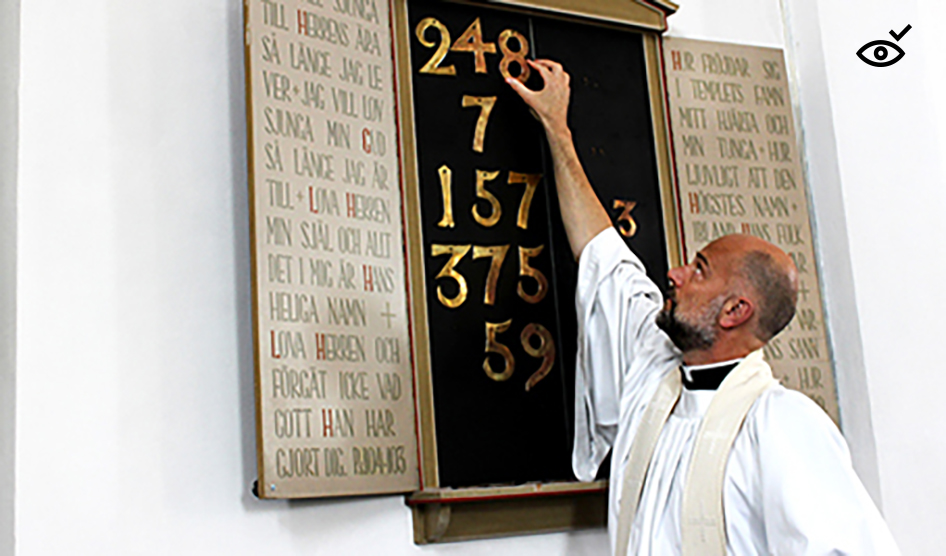 SJUNGA
TILL HERRENS ÄRA
SÅ LÄNGE JAG LE
VER+JAG VILL LOV
SJUNGA MIN GUD
SÅ LÄNGE JAG ÄR
TILL+LOVA HERREN
MIN SJÄL OCH ALLT
DET I MIG ÄR HANS
HELIGA NAMN +
LOVA HERREN OCH
FÖRGÄT ICKE VAD
GOTT HAN HAR
GJORT DIG. P.104-103
248
7
157
375
59
3
HUR FRÖJDAR SIG
I TEMPLETS FAMN
MITT HJÄRTA OCH
MIN TUNGA+HUR
LJUVLIGT ATT DEN
HÖGSTES NAMN+
IBLAND HANS FOLK
+ HUR